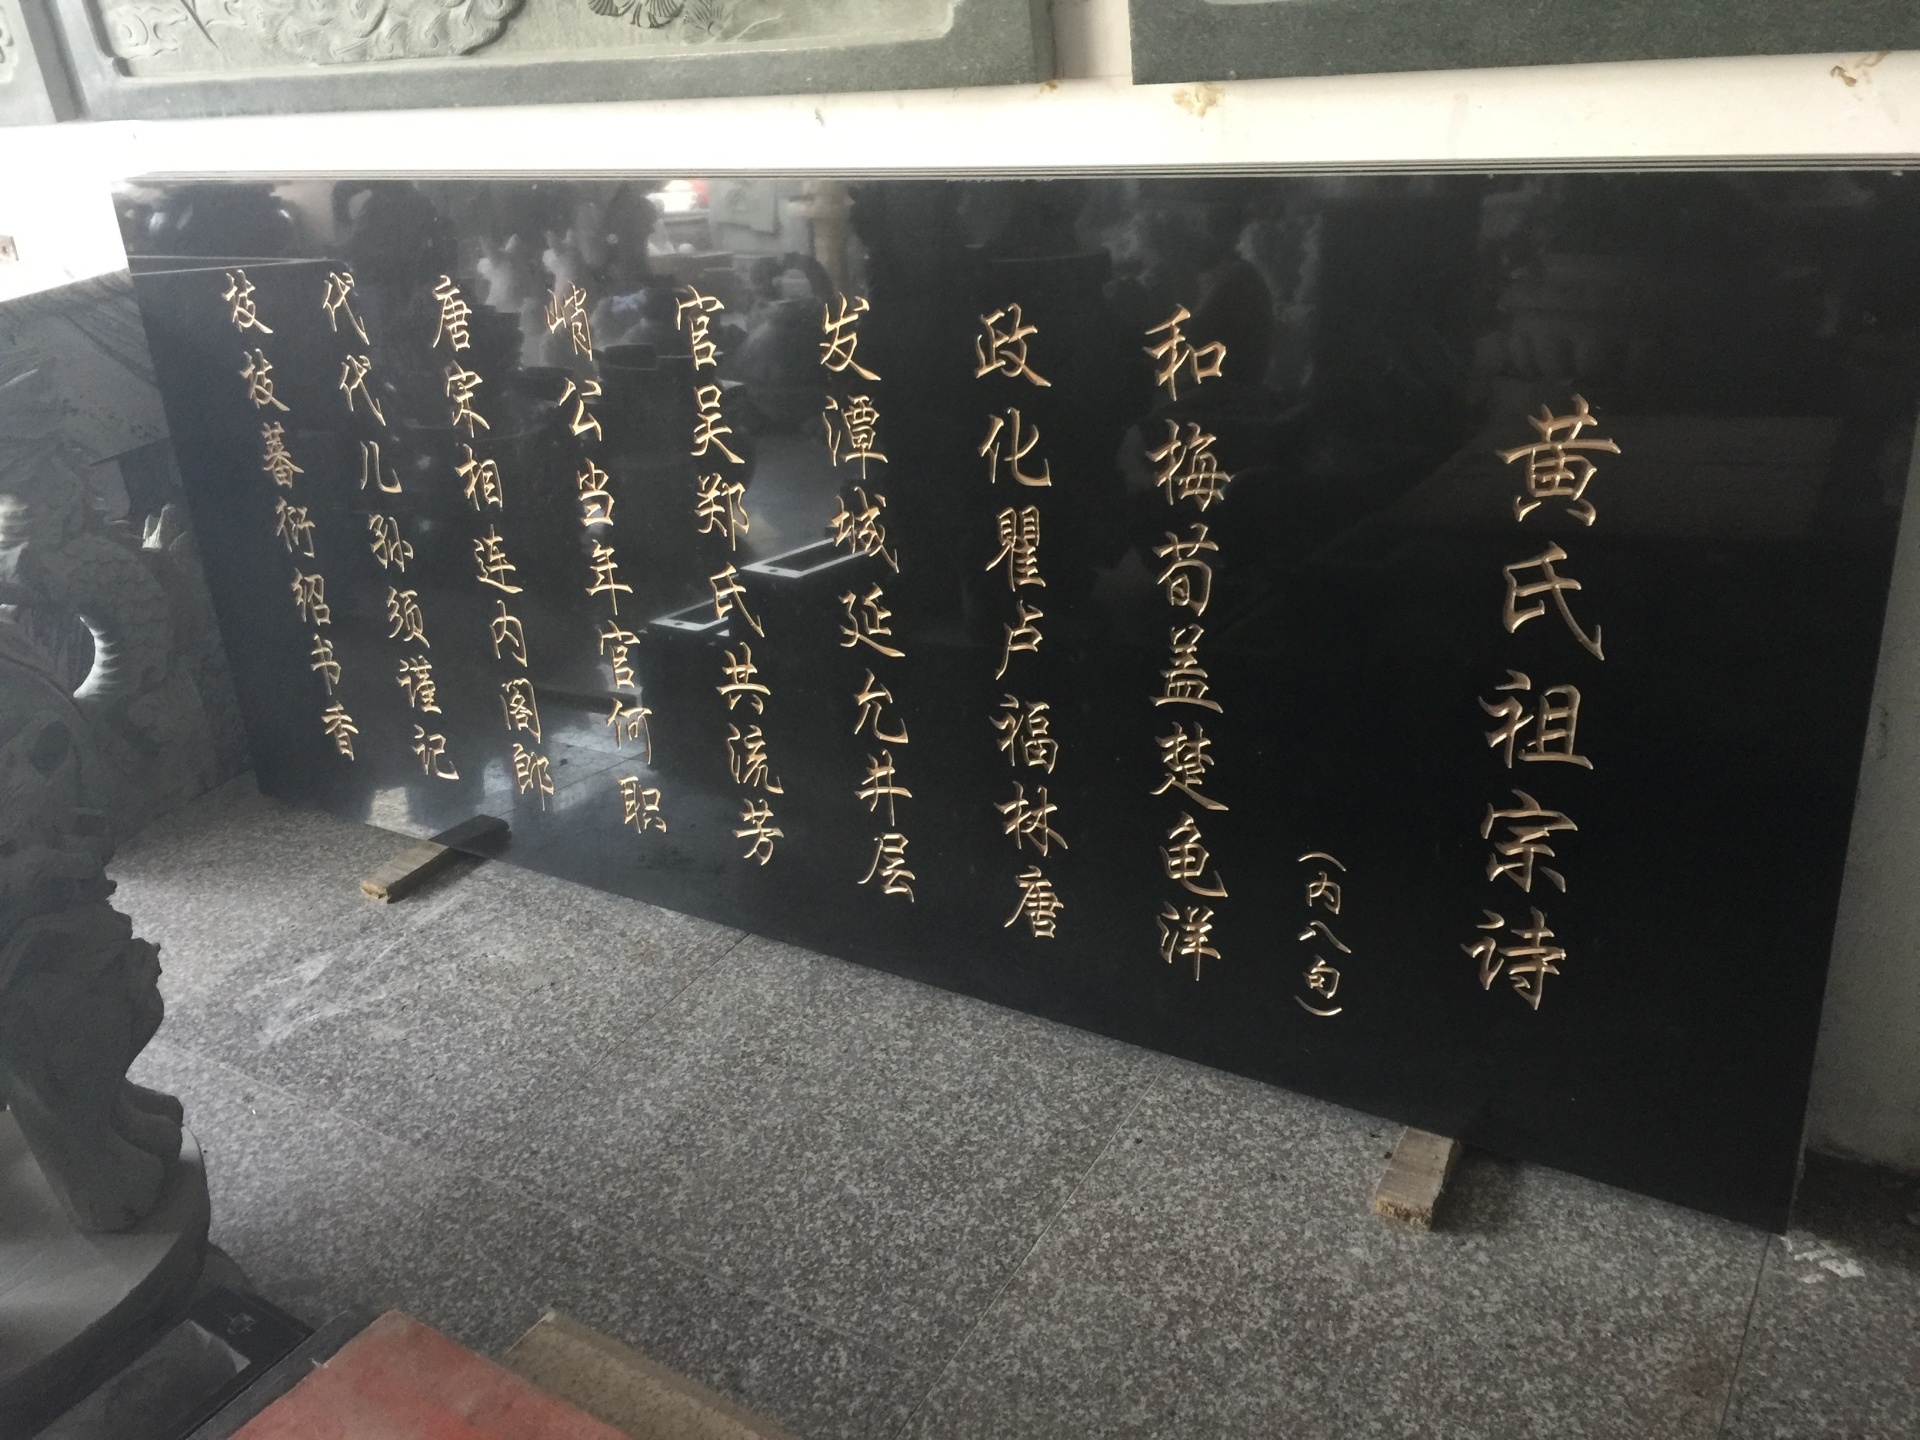 黄氏祖宗诗
（内八句）
和梅荀盖楚龟洋
政化瞿卢福林唐
发潭城延允井层
官吴郑氏共流芳
峭公当年官何职
唐宋相连内阁郎
代代儿孙须谨记
枝枝蕃衍绍书香